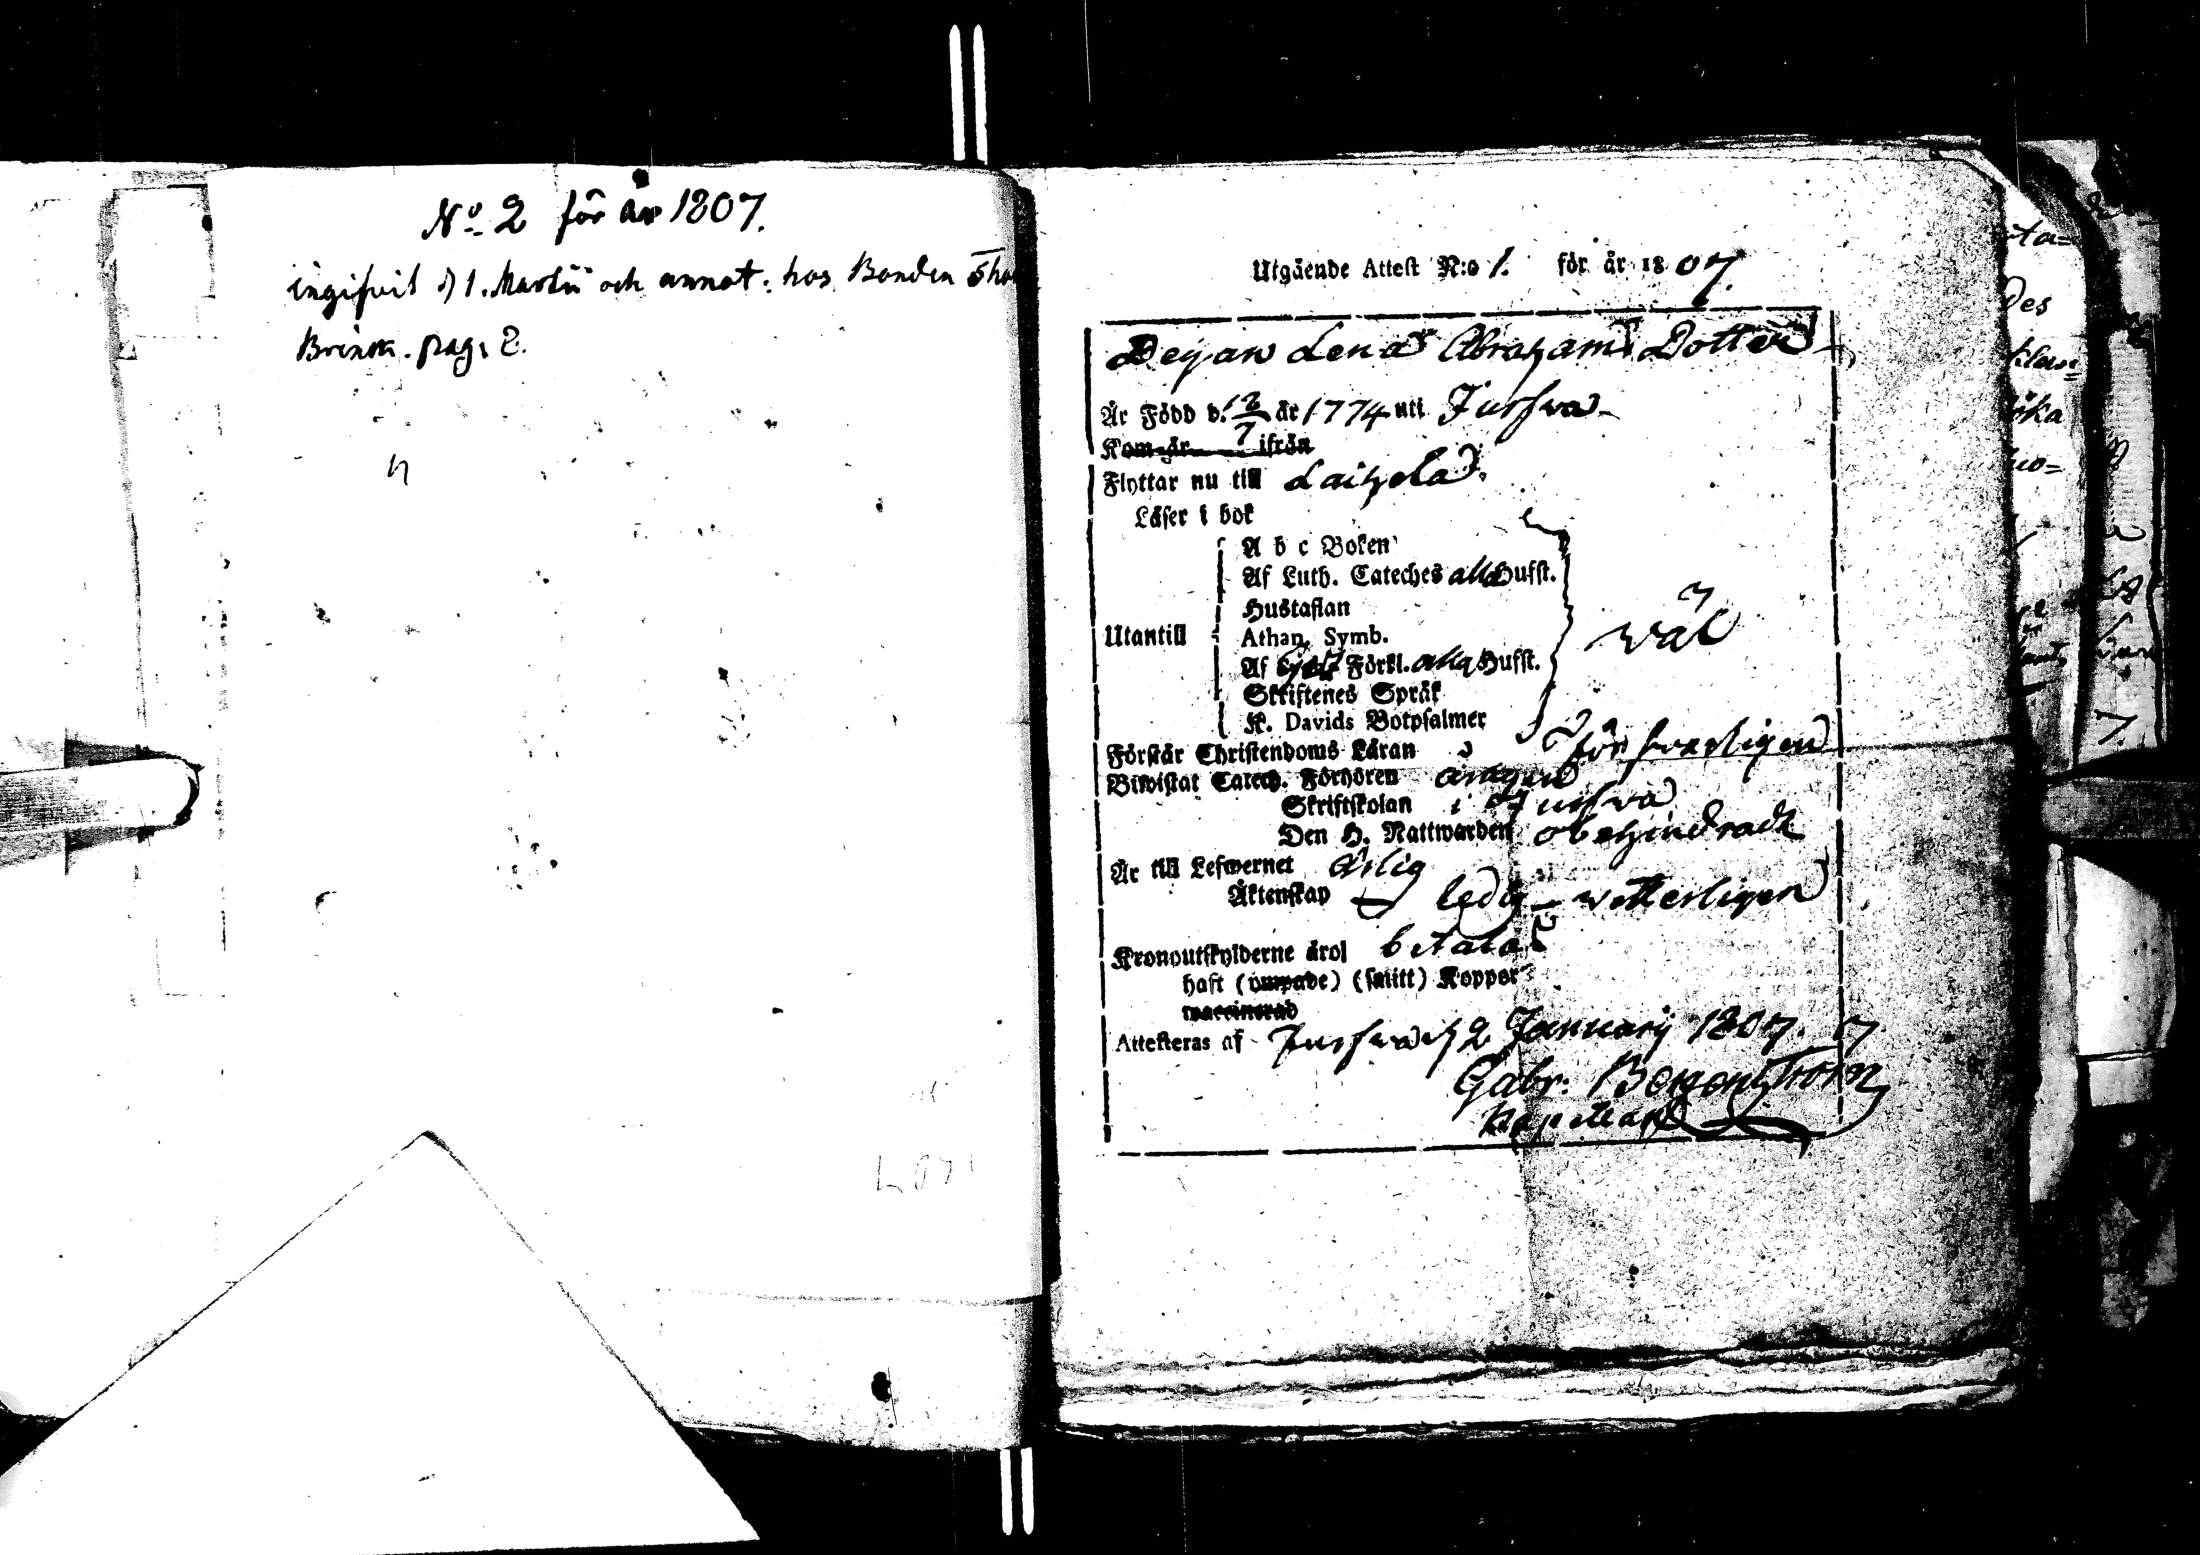 No 2 för år 1807.
ingifvit d 1. Martii och annot: hos Bonden Tho
Brinck. pag. 2.
Utgående Attest N:o 1. för år 1807.
Pigan Lena Abrahams Dotter
Är Född d. 12/7 år 1774 uti Jurfva
Kom år ifrån
Flyttar nu till Laihela
Läser i bok
A b c Boken
Af Luth. Cateches alla Hufst.
Hustaflan
Utantill Athan. Symb. wäl
Af Förkl. alla Hufst.
Skriftenes Språk
K. Davids Botpsalmer
Förstår Christendoms Läran försvarligen
Biwistat Catech. Förhören årligen
Skriftskolan i Jurfva
Den H. Nattwarden obehindradt
Är till Lefwernet ärlig
Äktenskap ledig wetterligen
Kronoutskylderne äro betalat
haft (umpade) (smitt) Koppor
vaccinerad
Attesteras af Jurfva d 2 January 1807.
Gabr:
Kapellan
ta=
des
klar=
öka